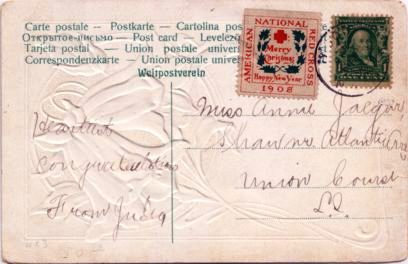 Carte postale — Postkarte — Cartolina posta
Открытое письмо — Post card — Levelező
Tarjeta postal — Union postale univer
Correspondenzkarte — Union postale unive
Weltpostverein
AMERICAN
NATIONAL
RED CROSS
Merry
Christmas
Happy New Year
1908
Heartiest
Congratulations
From
Miss Anna
Atlantic Ave
Union Course
L.I.